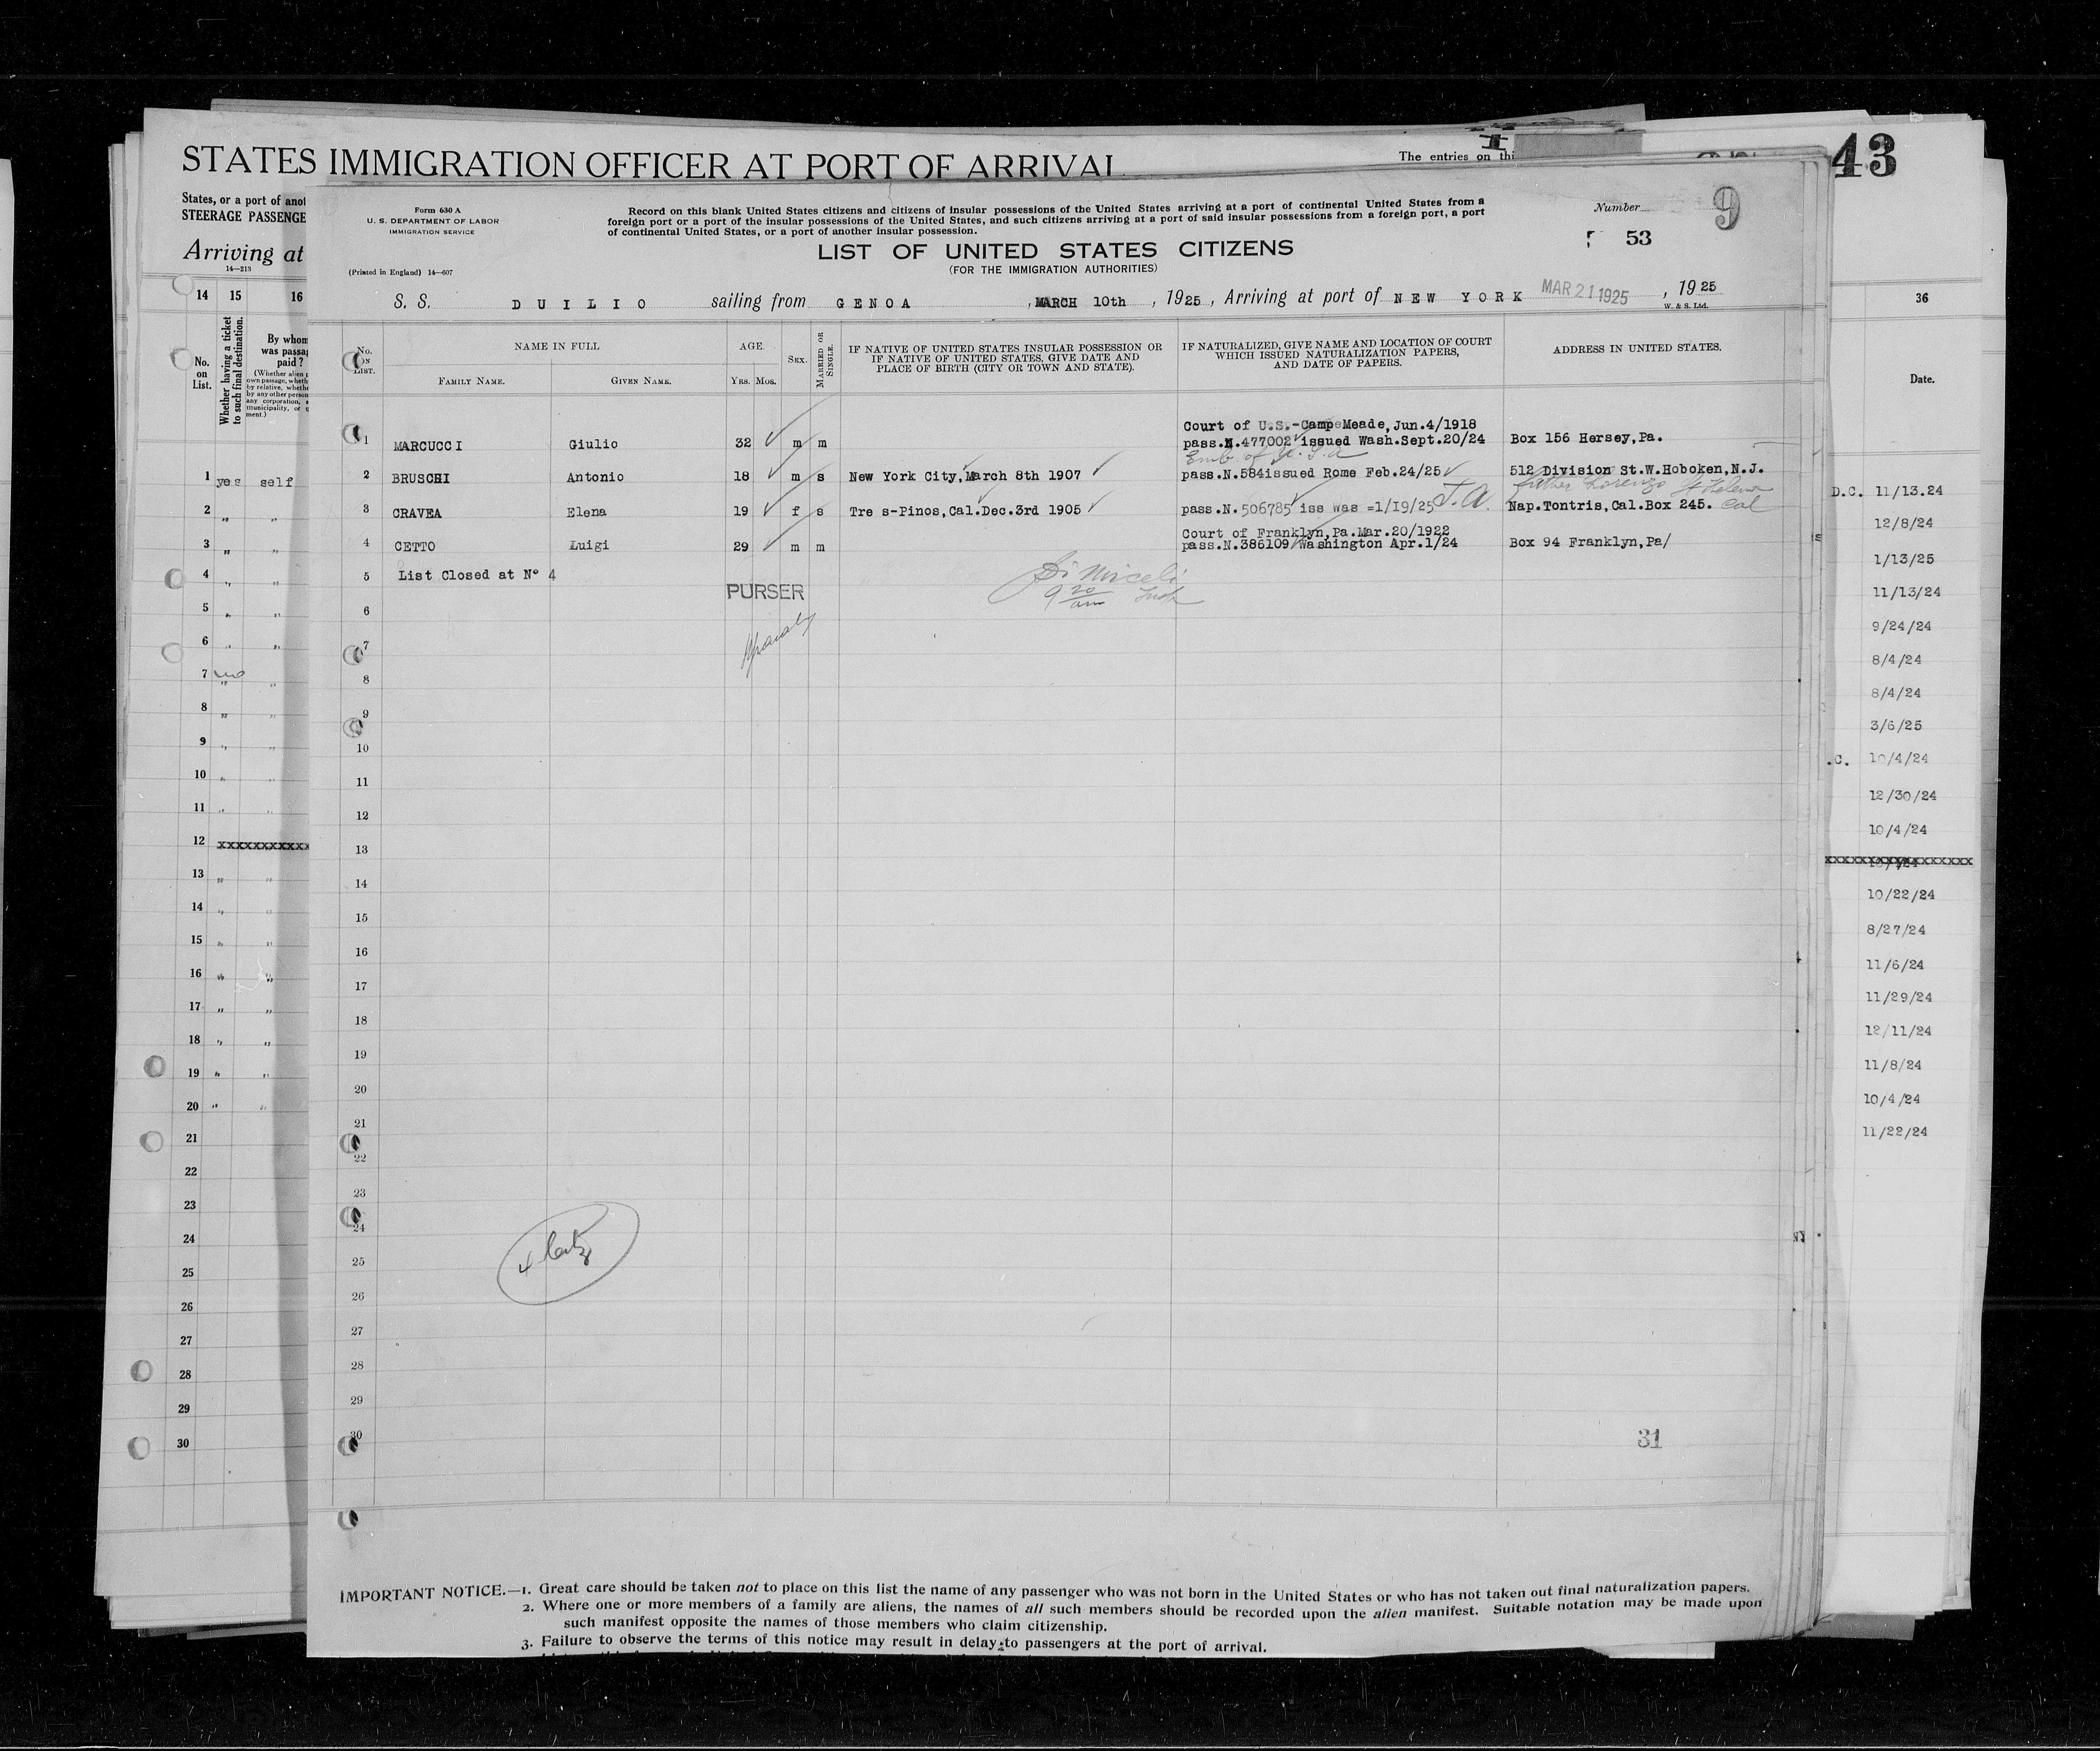 STATES IMMIGRATION OFFICER AT PORT OF ARRIVAL
The entries on thi
43
States, or a port of anot
STEERAGE PASSENGE
Arriving at
14—213
14 15 16
No. on List.
Whether having a ticket to such final destination.
By whom
was passag
paid?
(Whether alien p
own passage, wheth
by relative, whethe
by any other person
any corporation, s
municipality, or g
ment.)
1 yes self
2 " "
3 " "
4 " "
5 " "
6 " "
7 no " "
8 " "
9 " "
10 " "
11 " "
12 xxxxxxxxxxxx
13 " "
14 " "
15 " "
16 " "
17 " "
18 " "
19 " "
20 " "
21
22
23
24
25
26
27
28
29
30
Form 630 A
U. S. DEPARTMENT OF LABOR
IMMIGRATION SERVICE
(Printed in England) 14—607
Record on this blank United States citizens and citizens of insular possessions of the United States arriving at a port of continental United States from a
foreign port or a port of the insular possessions of the United States, and such citizens arriving at a port of said insular possessions from a foreign port, a port
of continental United States, or a port of another insular possession.
Number 9
53
LIST OF UNITED STATES CITIZENS
(FOR THE IMMIGRATION AUTHORITIES)
S. S. DUILIO sailing from GENOA , MARCH 10th , 1925 , Arriving at port of NEW YORK MAR 21 1925 , 1925
W. & S. Ltd.
No. on List.
NAME IN FULL
Family Name. Given Name.
AGE.
Yrs. Mos.
Sex.
Married or Single.
IF NATIVE OF UNITED STATES INSULAR POSSESSION OR
IF NATIVE OF UNITED STATES, GIVE DATE AND
PLACE OF BIRTH (CITY OR TOWN AND STATE).
IF NATURALIZED, GIVE NAME AND LOCATION OF COURT
WHICH ISSUED NATURALIZATION PAPERS,
AND DATE OF PAPERS.
ADDRESS IN UNITED STATES.
Court of U.S.-Camp Meade, Jun.4/1918
1 MARCUCCI Giulio 32 m m pass.N.477002 issued Wash.Sept.20/24 Box 156 Hersey,Pa.
Emb. of U.S.A
2 BRUSCHI Antonio 18 m s New York City,March 8th 1907 pass.N.584issued Rome Feb.24/25 512 Division St.W.Hoboken,N.J.
father Lorenzo St Helena
3 CRAVEA Elena 19 f s Tre s-Pinos,Cal.Dec.3rd 1905 pass.N.506785 iss was =1/19/25 J.A. Nap.Tontris,Cal.Box 245. Cal
Court of Franklyn,Pa.Mar.20/1922
4 CETTO Luigi 29 m m pass.N.386109/Washington Apr.1/24 Box 94 Franklyn,Pa/
5 List Closed at Nº 4
PURSER
9 20 am Insp
6
7
8
9
10
11
12
13
14
15
16
17
18
19
20
21
22
23
24
25
26
27
28
29
30
31
36
Date.
D.C. 11/13.24
12/8/24
1/13/25
11/13/24
9/24/24
8/4/24
8/4/24
3/6/25
.C. 10/4/24
12/30/24
10/4/24
xxxxxxxxxxxxxxxxx
10/22/24
8/27/24
11/6/24
11/29/24
12/11/24
11/8/24
10/4/24
11/22/24
IMPORTANT NOTICE.—1. Great care should be taken not to place on this list the name of any passenger who was not born in the United States or who has not taken out final naturalization papers.
2. Where one or more members of a family are aliens, the names of all such members should be recorded upon the alien manifest. Suitable notation may be made upon
such manifest opposite the names of those members who claim citizenship.
3. Failure to observe the terms of this notice may result in delay to passengers at the port of arrival.